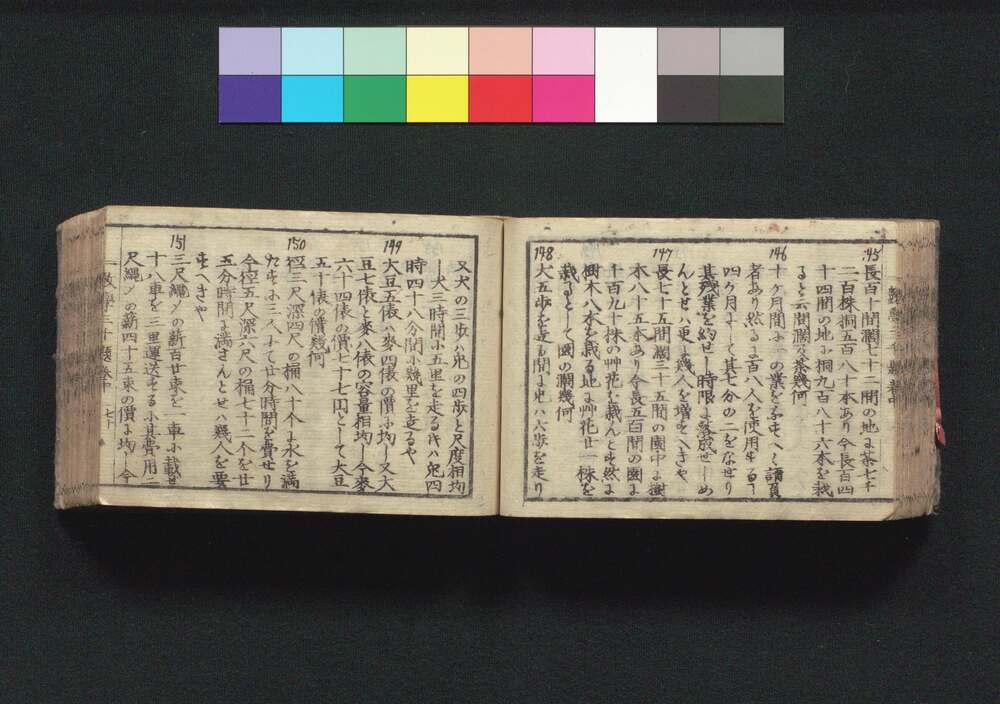 145
長百十間濶七十二間の地に茶七千
二百株桐五百八十本あり今長百四
十四間の地に桐九百八十六本を栽
ると云間濶及茶幾何
146
十ケ月間に一の業を
者あり然るに百八人を使用する
四ケ月にして其七分の二をなせり
其残業を約せし時限に落成せしめ
んとせハ更に幾人を増すへきや
147
長七十五間濶三十五間の園中に樹
木八十五本あり今長五百間の園に
千百九十株の艸花を栽んと す然に
樹木八本を栽る地に艸花廿一株を
栽るとして園の濶幾何
148
犬五歩を走る間に兎ハ六歩を走り
又犬の三歩ハ兎の四歩と尺度相均
し犬三時間に五里を走る時ハ兎四
時四十八分間に幾里を走るや
149
大豆五俵ハ麥四俵の價に均し又大
豆七俵と麥八俵の容量相均し今麥
六十四俵の價七十七円として大豆
五十俵の價幾何
150
徑三尺深四尺の桶八十个に水を満
たすに三人にて廿分時間を費せり
今徑五尺深六尺の桶七十二个を廿
五分時間に満さんとせハ幾人を要
すへきや
151
三尺縄〆の薪百廿束を一車に載せ
十八車を三里運送する小其費用二
尺縄〆の薪四十五束の價に均し今
數學三千題卷中 七十